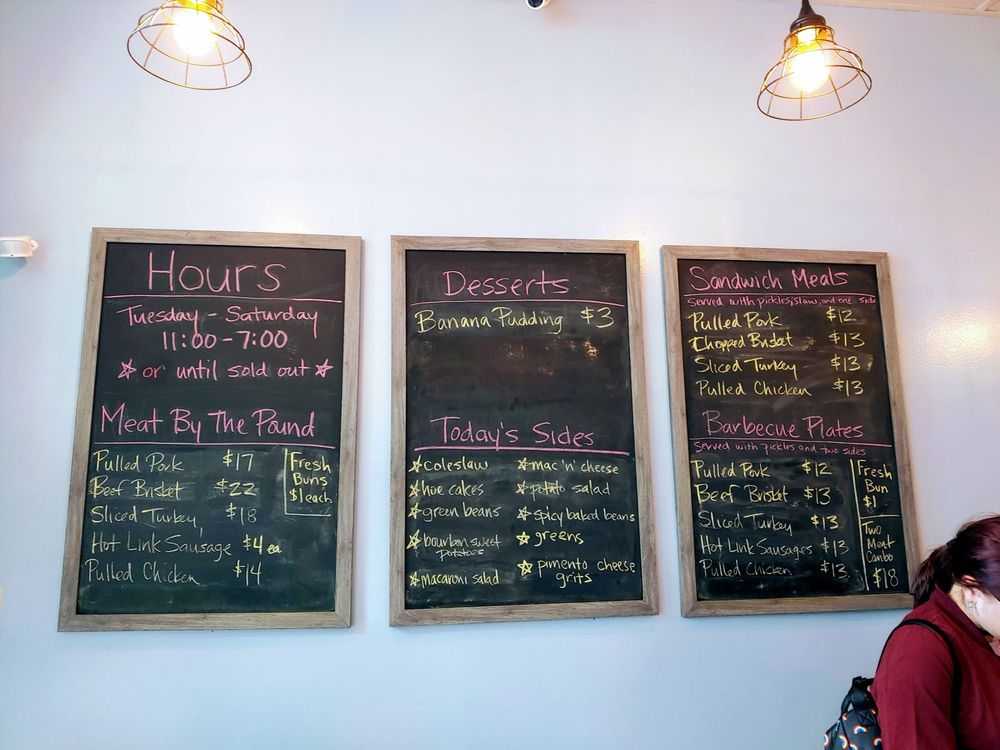 Hours
Tuesday - Saturday
11:00 - 7:00
☆ or until sold out ☆
Meat By The Pound
Pulled Pork $17
Beef Brisket $22
Sliced Turkey $18
Hot Link Sausage $4 ea
Pulled Chicken $14
Fresh
Buns
$1 each
Desserts
Banana Pudding $3
Today's Sides
☆ coleslaw
☆ hoe cakes
☆ green beans
☆ bourbon sweet
potatoes
☆ macaroni salad
☆ mac 'n' cheese
☆ potato salad
☆ spicy baked beans
☆ greens
☆ pimento cheese
grits
Sandwich Meals
Served with pickles, slaw, and one side
Pulled Pork $12
Chopped Brisket $13
Sliced Turkey $13
Pulled Chicken $13
Barbecue Plates
Served with pickles and two sides
Pulled Pork $12
Beef Brisket $13
Sliced Turkey $13
Hot Link Sausages $13
Pulled Chicken $13
Fresh
Bun
$1
Two
Meat
Combo
$18